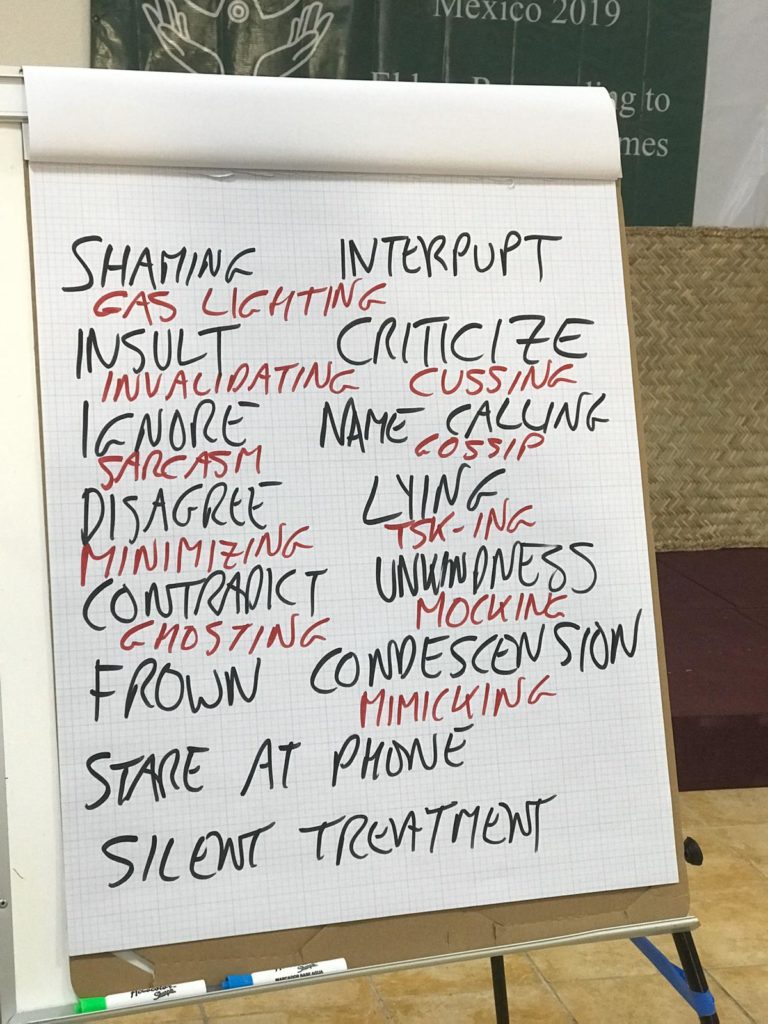 Mexico 2019
to
SHAMING INTERPUPT
GAS LIGHTING
INSULT CRITICIZE
INVALIDATING CUSSING
IGNORE NAME CALLING
SARCASM GOSSIP
DISAGREE LYING
MINIMIZING TSK-ING
CONTRADICT UNKINDNESS
GHOSTING MOCKING
FROWN CONDESCENSION
MIMICKING
STARE AT PHONE
SILENT TREATMENT
Sharpie
MARCADOR BASE AGUA